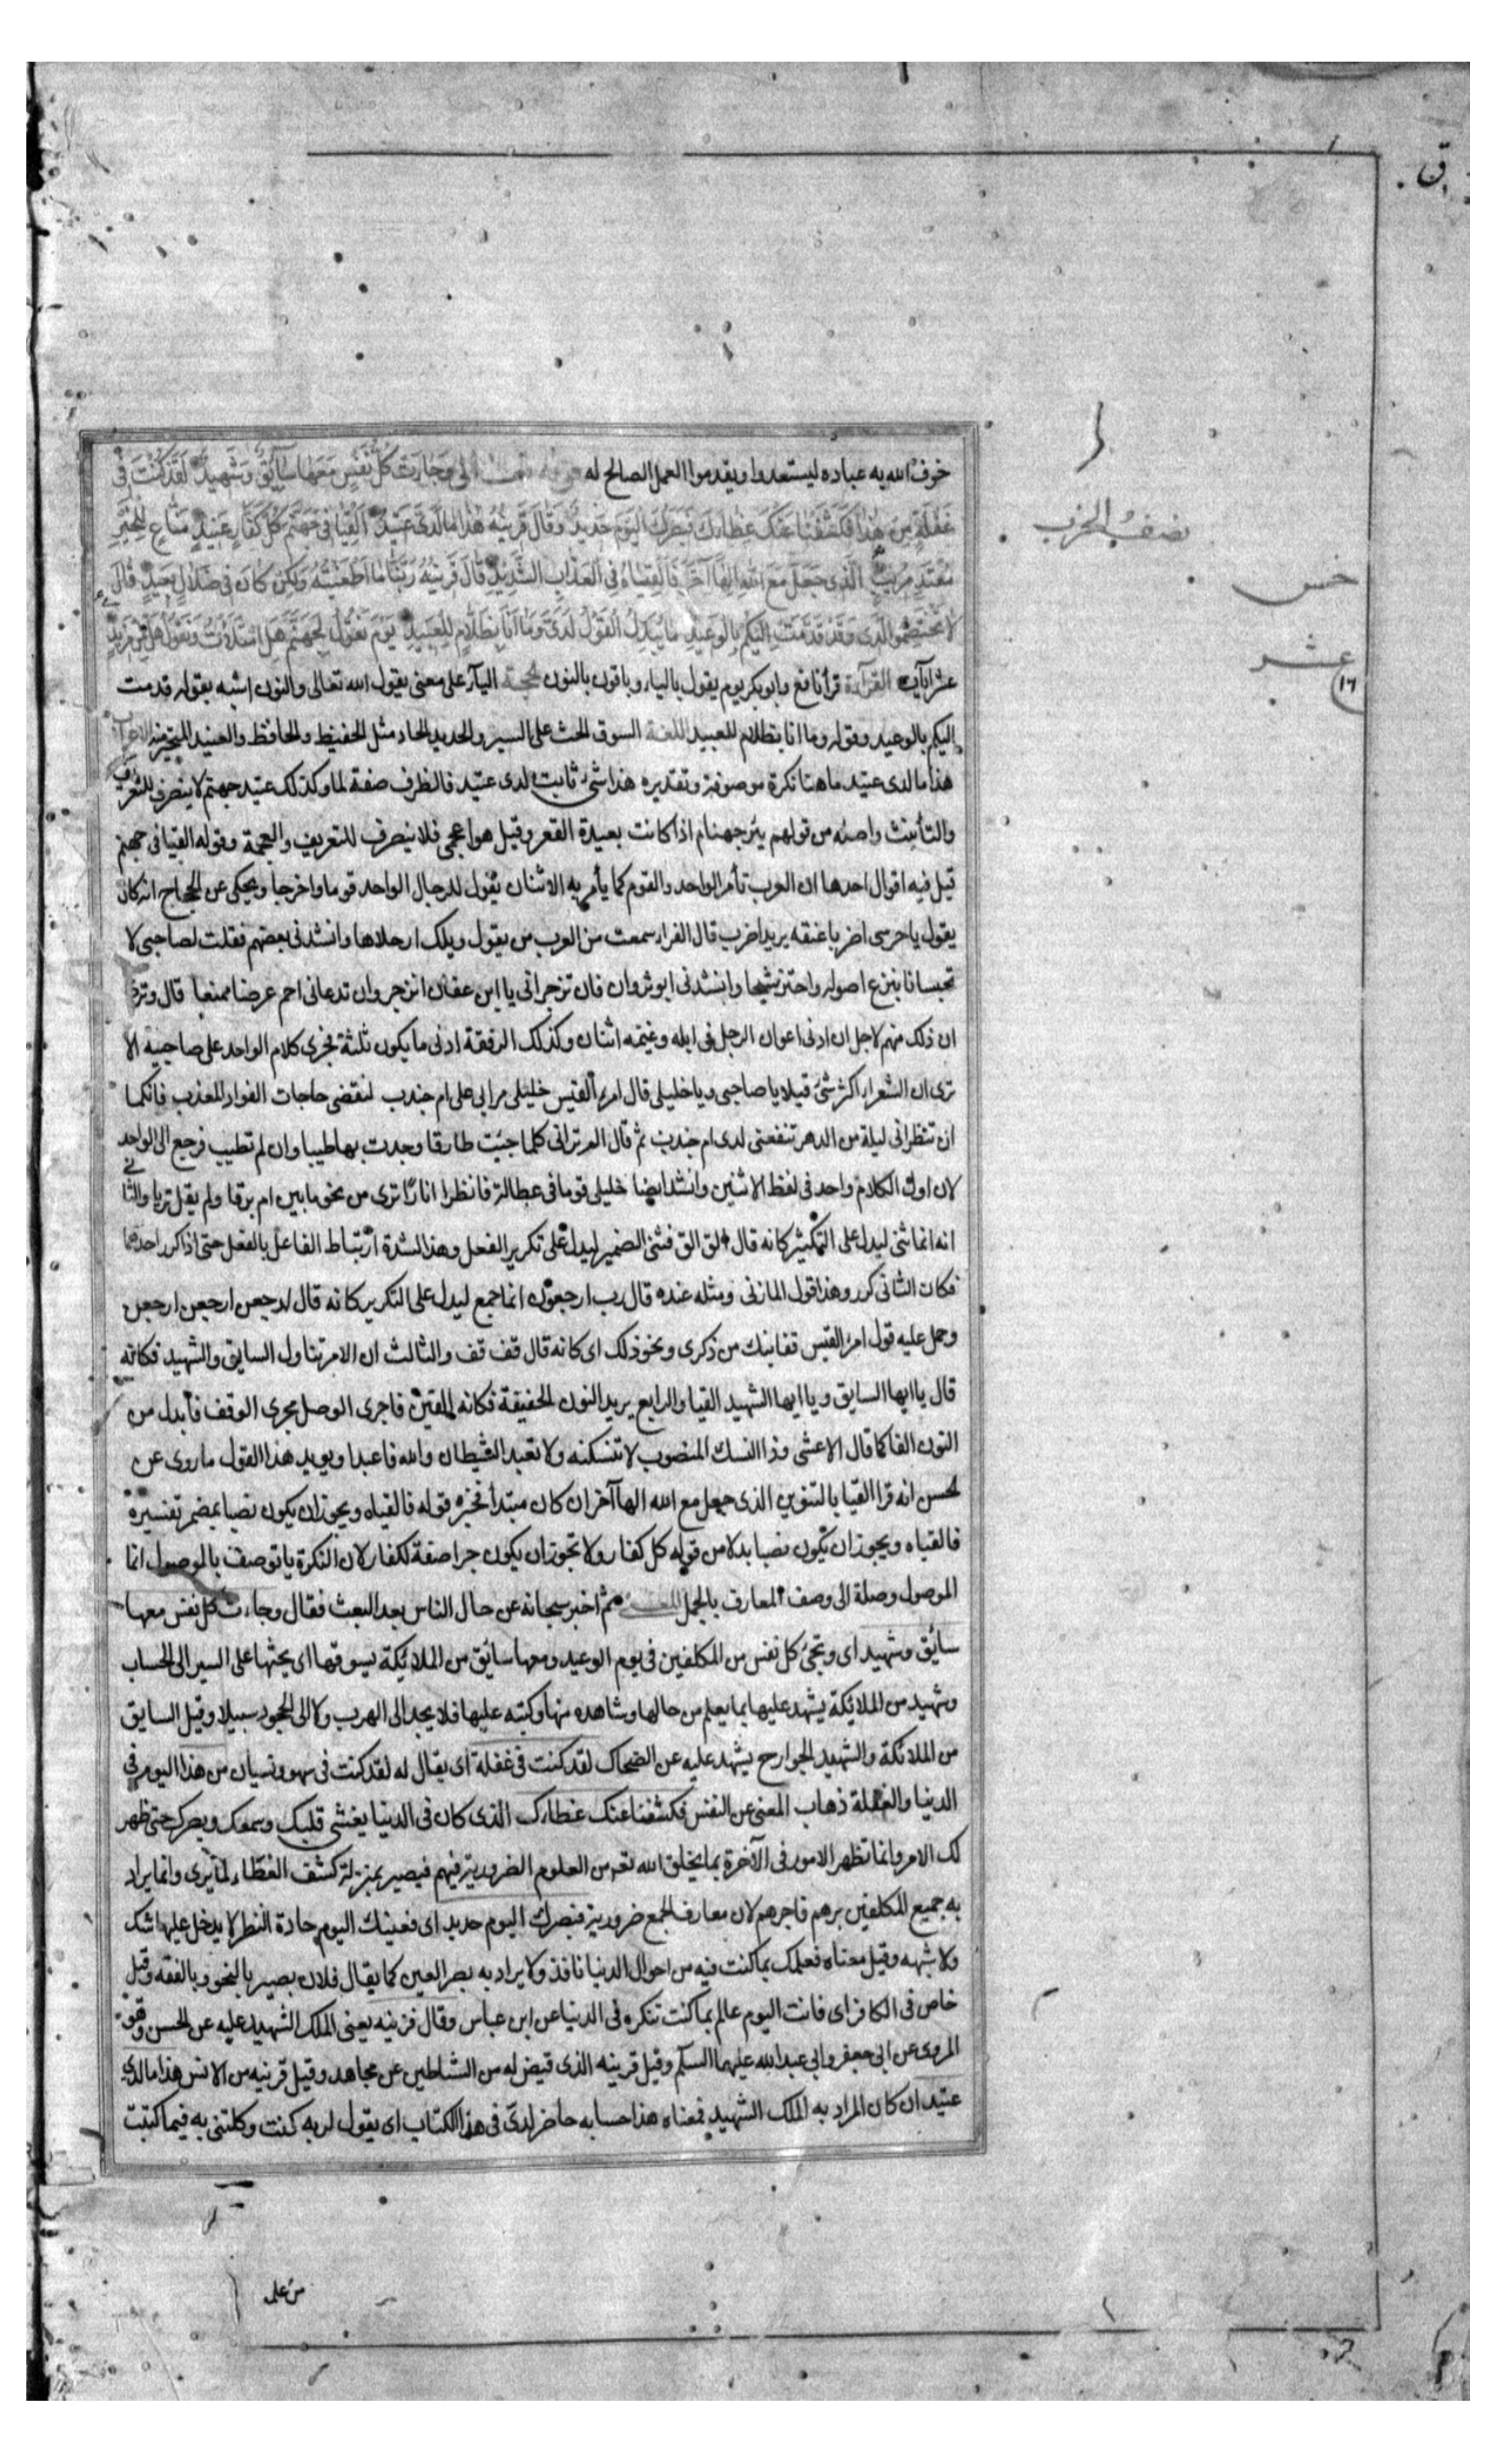 ق
خوف الله به عباده ليستعدوا ويقدموا العمل الصالح له وجاءت كل نفس معها سائق وشهيد لقد كنت في
غفلة من هذا فكشفنا عنك غطاءك فبصرك اليوم حديد وقال قرينه هذا ما لدي عتيد القيا في جهنم كل كفار عنيد مناع للخير
معتد مريب الذي جعل مع الله الها آخر فالقياه في العذاب الشديد قال قرينه ربنا ما اطغيته ولكن كان في ضلال بعيد قال
لا تختصموا لدي وقد قدمت اليكم بالوعيد ما يبدل القول لدي وما انا بظلام للعبيد يوم نقول لجهنم هل امتلأت وتقول هل من مزيد
عشر آيات القرآءة قرأ نافع وابوبكر يوم يقول بالياء وباقون بالنون الحجة اليآء على معنى يقول الله تعالى والنون اشبه بقوله قدمت
اليكم بالوعيد وقوله وما انا بظلام للعبيد اللغة السوق الحث على السير والحديد الحاد مثل الحفيظ والحافظ والعنيد المتحير منه الاعراب
هذا ما لدى عتيد ما هنا نكرة موصوفة وتقديره هذا شئ ثابت لدى عتيد فالظرف صفة لما وكذلك عتيد جهنم لا ينصرف للتعريف
والتأنيث واصله من قولهم بئر جهنام اذا كانت بعيدة القعر وقيل هو اعجمى فلا ينصرف للتعريف والعجمة وقوله القيا فى جهنم
قيل فيه اقوال احدها ان العرب تأمر الواحد والقوم كما يأمر به الاثنان يقول للرجال الواحد قوما واخرجا ويحكى عن الحجاج انه كان
يقول يا حرسى اضربا عنقه يريد اضرب قال الفراء سمعت من العرب من يقول ويلك ارحلاها وانشدنى بعضهم فقلت لصاحبى لا
تحبسانا بنزع اصوله واجتز شيحا وانشدنى ابو ثروان فان تزجرانى يا ابن عفان انزجر وان تدعانى احم عرضا ممنعا قال وترى
ان ذلك منهم لاجل ان ادنى اعوان الرجل فى ابله وغنمه اثنان وكذلك الرفقة ادنى ما يكون ثلثة فجرى كلام الواحد على صاحبيه الا
ترى ان الشعراء اكثر شئ قيلا يا صاحبى ويا خليلى قال امرء القيس خليلى مرا بى على ام جندب لنقضى حاجات الفواد المعذب فانكما
ان تنظرانى ليلة من الدهر تنفعنى لدى ام جندب ثم قال الم ترانى كلما جئت طارقا وجدت بها طيبا وان لم تطيب فرجع الى الواحد
لان اول الكلام واحد فى لفظ الاثنين وانشد ايضا خليلى قوما فى عطالة فانظرا انارا ترى من نحو ما بين ام برقا ولم يقل تريا والثانى
انه انما ثنى ليدل على التكثير كانه قال الق الق فثنى الضمير ليدل على تكرير الفعل وهذا لشدة ارتباط الفاعل بالفعل حتى اذا كرر احدهما
فكان الثانى كرر وهذا قول المازنى ومثله عنده قال رب ارجعون انما جمع ليدل على التكرير كانه قال ارجعن ارجعن ارجعن
وحمل عليه قول امرء القيس قفا نبك من ذكرى ونحو ذلك اى كانه قال قف قف والثالث ان الامر تناول السايق والشهيد فكانه
قال يا ايها السايق ويا ايها الشهيد القيا والرابع يريد النون الخفيفة فكانه القين فاجرى الوصل مجرى الوقف فأبدل من
النون الفا كما قال الاعشى وذا النسك المنصوب لا تنسكنه ولا تعبد الشيطان والله فاعبدا ويويد هذا القول ما روى عن
لحسن انه قرا القيا بالتنوين الذى جعل مع الله الها آخر ان كان مبتدأ فخبره قوله فالقياه ويجوز ان يكون نصبا بمضمر تفسيره
فالقياه ويجوز ان يكون نصبا بدلا من قوله كل كفار ولا تجوز ان يكون جرا صفة لكفار لان النكرة يا توصف بالموصول انما
الموصول وصلة الى وصف المعارف بالجمل ثم اخبر سبحانه عن حال الناس بعد البعث فقال وجاءت كل نفس معها
سائق وشهيد اى وتجئ كل نفس من المكلفين فى يوم الوعيد ومعها سائق من الملائكة يسوقها اى يحثها على السير الى الحساب
وشهيد من الملائكة يشهد عليها بما يعلم من حالها وشاهده منها وكتبه عليها فلا يجد الى الهرب ولا الى الجحود سبيلا وقيل السايق
من الملائكة والشهيد الجوارح يشهد عليه عن الضحاك لقد كنت فى غفلة اى يقال له لقد كنت فى سهو ونسيان من هذا اليوم فى
الدنيا والغفلة ذهاب المعنى عن النفس فكشفنا عنك غطاءك الذى كان فى الدنيا يغشى قلبك وسمعك وبصرك حتى ظهر
لك الامر وانما تظهر الامور فى الآخرة بما يخلق الله تعه من العلوم الضرورية فيهم فيصير بمنزلة كشف الغطاء لما يرى وانما يراد
به جميع المكلفين برهم فاجرهم لان معارف الجمع ضرورية فبصرك اليوم حديد اى فعينك اليوم حادة النظر لا يدخل عليها شك
ولا شبهه وقيل معناه فعلمك بما كنت فيه من احوال الدنيا نافذ ولا يراد به بصر العين كما يقال فلان بصير بالنحو وبالفقه وقيل
خاص فى الكافر اى فانت اليوم عالم بما كنت تنكره فى الدنيا عن ابن عباس وقال قرينه يعنى الملك الشهيد عليه عن الحسن وهو
المروى عن ابى جعفر وابى عبد الله عليهما السلم وقيل قرينه الذى قيض له من الشياطين عن مجاهد وقيل قرينه من الانس هذا ما لدى
عتيد ان كان المراد به الملك الشهيد فمعناه هذا حسابه حاضر لدى فى هذا الكتاب اى يقول لربه كنت وكلتنى به فيما كتبت
نصف الحزب
خمس
عشر
١٦
من عمله